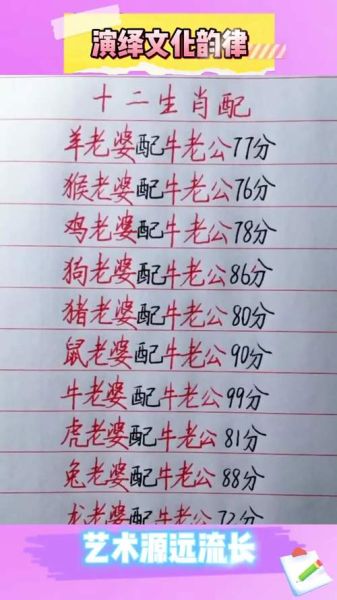 演绎文化韵律
十二生肖配
羊老婆配牛老公77分
猴老婆配牛老公76分
鸡老婆配牛老公78分
狗老婆配牛老公86分
猪老婆配牛老公80分
鼠老婆配牛老公90分
牛老婆配牛老公99分
虎老婆配牛老公81分
兔老婆配牛老公88分
龙老婆配牛老公72分
艺术源远流长